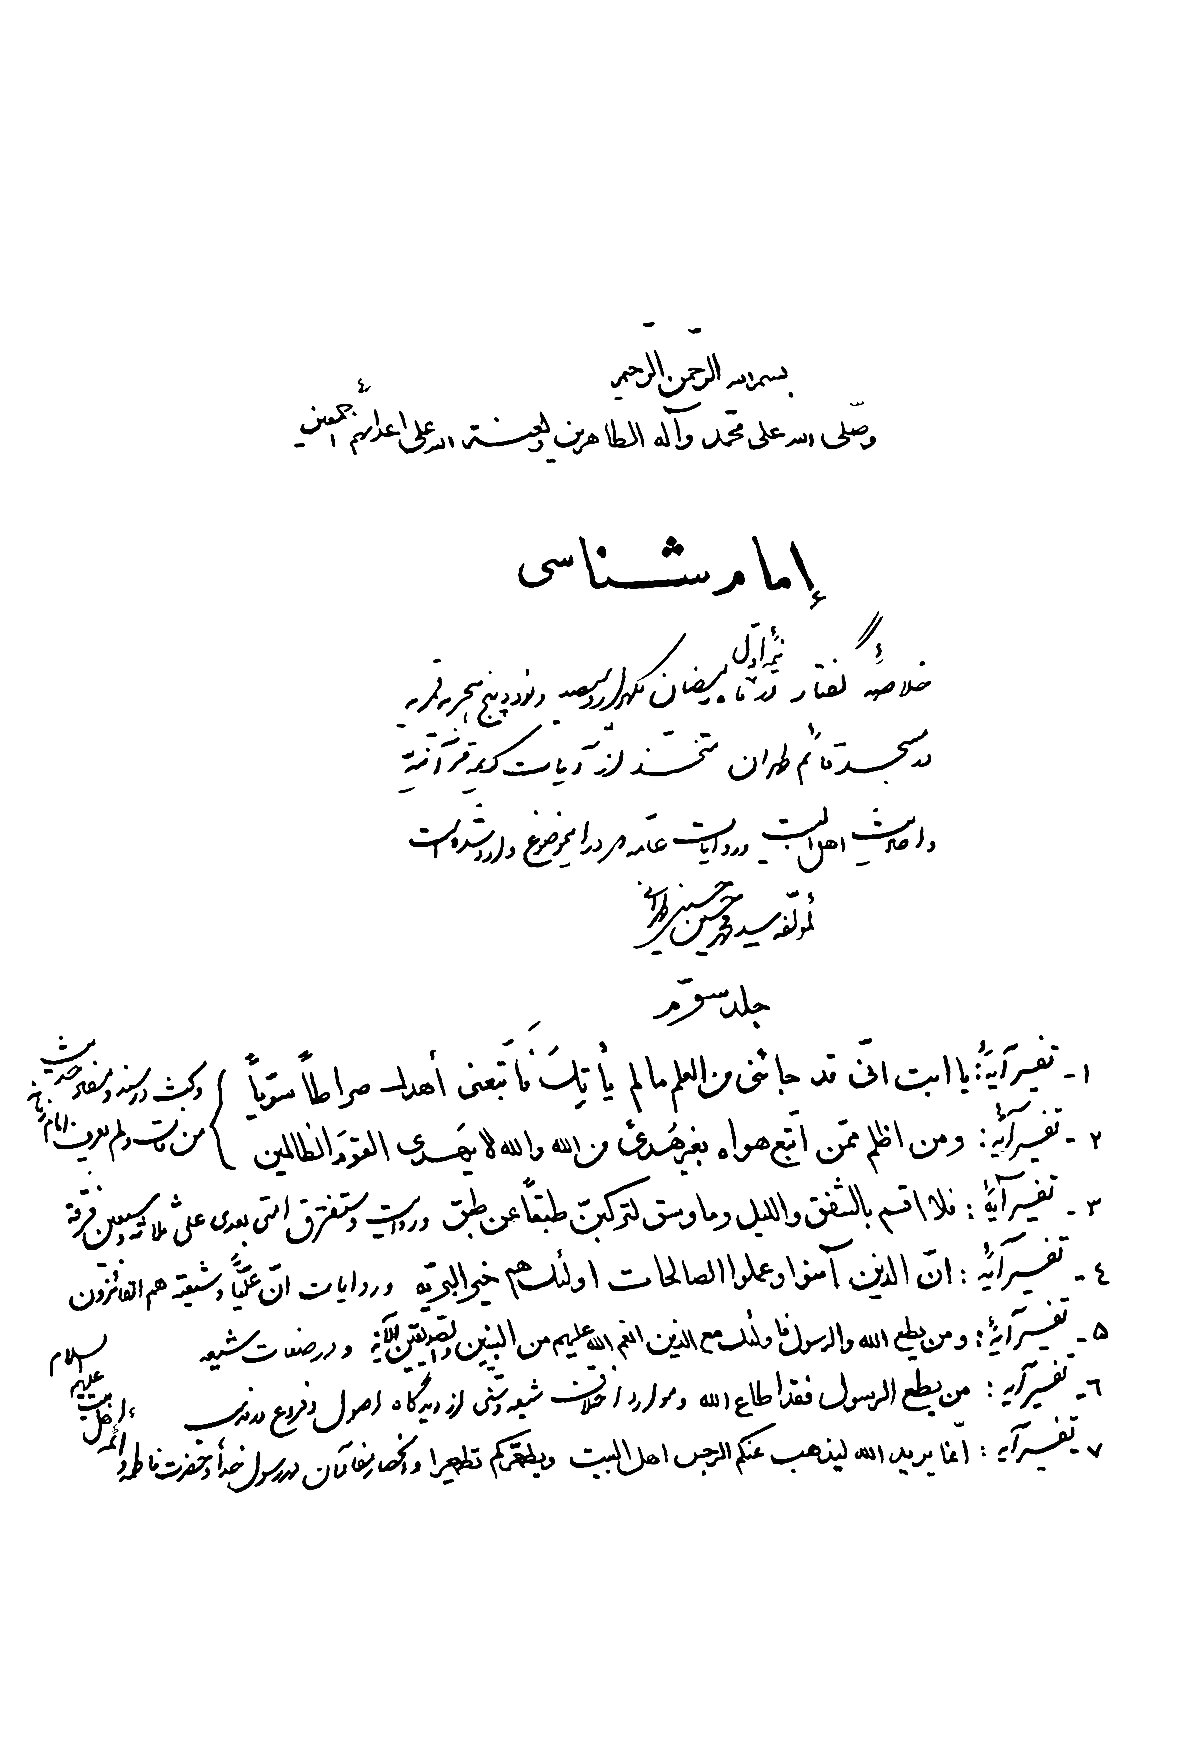 بسم الله الرّحمن الرّحيم
وصلّى الله على محمّد وآله الطاهرين ولعنة الله على اعدائهم أجمعين
إمام شناسى
خلاصهٔ گفتار نيمهٔ اوّل در ماه رمضان يكهزار و سيصد و نود و پنج هجريه قمريه
در مسجد قائم طهران متخذ از آيات كريمه قرآنيّه
و احاديث اهل البيت و روايات عامّه كه در اين موضوع وارد شده است
لمؤلّفه سيد محمد حسين حسينى طهرانى
جلد سوّم
١- تفسير آيهٔ: يا ابت انّى قد جائنى من العلم ما لم يأتِكَ فاتَّبعنى أهدك صراطاً سويّاً
٢- تفسير آيهٔ: ومن اظلم ممّن اتّبع هواه بغير هدىً من الله والله لا يهدى القوم الظالمين
} وبحث در سند و مفاد حديث من مات ولم يعرف امام زمانه
٣- تفسير آيهٔ: فلا اقسم بالشفق والليل وما وسق لتركبنّ طبقاً عن طبق و روايت وستفترق امّتى بعدى على ثلاثة وسبعين فرقة
٤- تفسير آيهٔ: انّ الذين آمنوا وعملوا الصالحات اولئك هم خير البريّه و روايات انّ عليّاً وشيعته هم الفائزون
٥- تفسير آيهٔ: ومن يطع الله والرسول فاولئك مع الذين انعم الله عليهم من النبيّين والصّدّيقين الآية و در صفات شيعه
٦- تفسير آيه: من يطع الرسول فقد اطاع الله و موارد اختلاف شيعه و سنّى از ديدگاه اصول و فروع
٧- تفسير آيه: انّما يريد الله ليذهب عنكم الرجس اهل البيت ويطهّركم تطهيرا و انحصار مفاد آن در رسول خدا و حضرت فاطمه و ائمّهٔ اهل بيت عليهم السلام